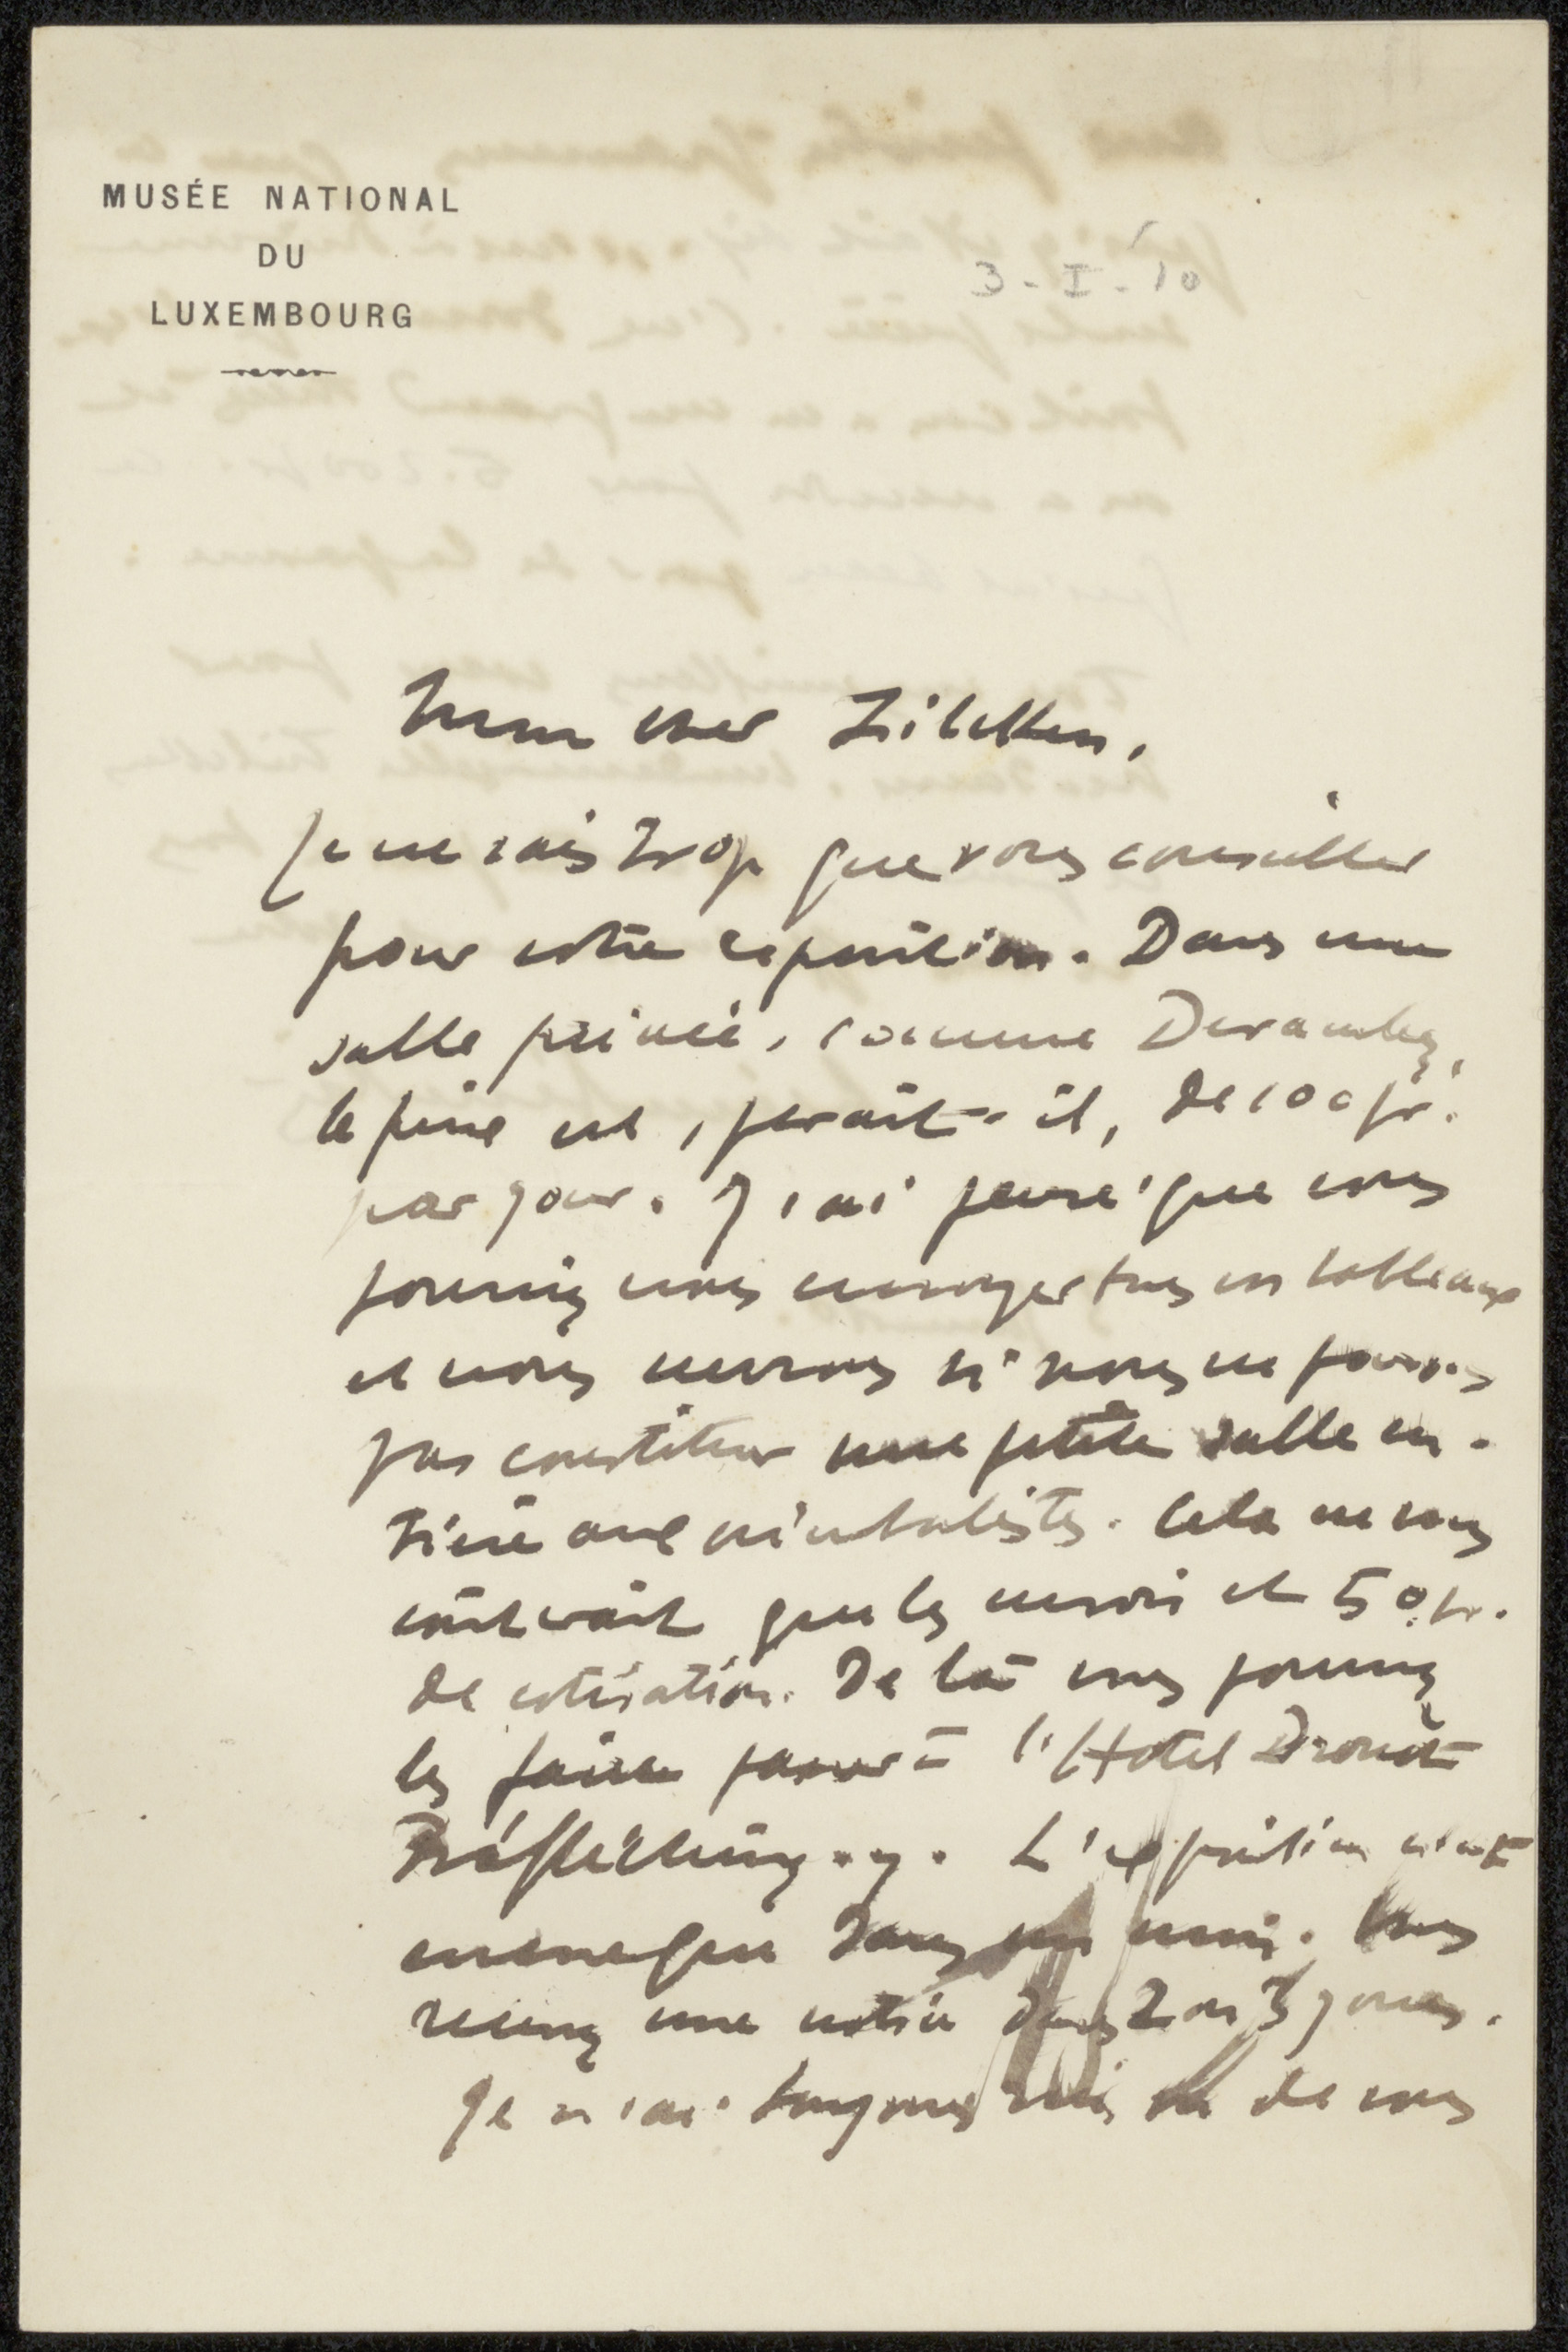 MUSÉE NATIONAL
DU
LUXEMBOURG
3-I-'10
Mon cher Zilcken,
Je ne sais trop que vous conseiller
pour votre exposition. Dans une
salle privée, comme Devambez,
le prix est, paraît-il, de 100 fr.
par jour. J'ai pensé que vous
pourriez nous envoyer tous vos tableaux
et nous verrons si nous ne pouvons
pas constituer une petite salle en-
tière aux orientalistes. Cela ne vous
coûterait que les envois et 50 fr.
de cotisation. De là vous pourriez
les faire passer à l'Hotel Drouot
Réfléchissez-y. L'exposition n'est
encore que dans un mois. Vous
recevrez une notice dans 2 ou 3 jours.
Je n'ai toujours rien de vous